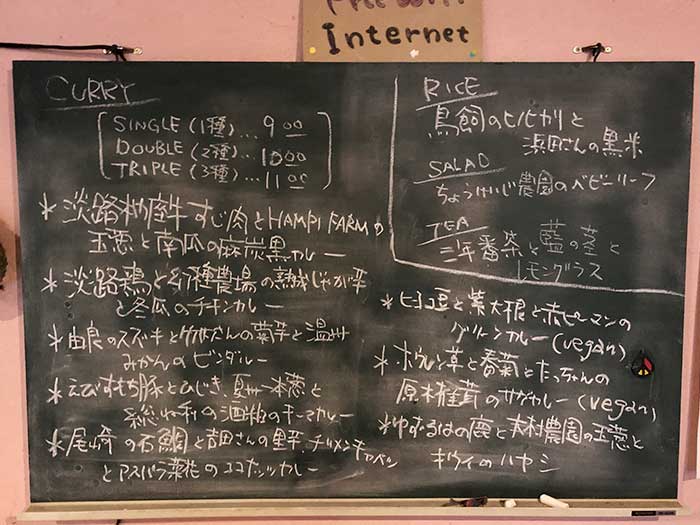 Freedom!
Internet
CURRY
SINGLE (1種)... 900
DOUBLE (2種)... 1000
TRIPLE (3種)... 1100
* 淡路椚座牛すじ肉とHAMPI FARMの
玉葱と南瓜の麻炭黒カレー
* 淡路鶏と幻種農場の熟成じゃが芋
と冬瓜のチキンカレー
* 由良のスズキと竹林さんの菊芋と温州
みかんのビンダルー
* えびすもち豚とひじき、夏井一本葱と
の酒粕のキーマカレー
* 尾崎の石鯛と吉田さんの里芋、チリメンキャベツ
とアスパラ菜花のココナッツカレー
RICE
鳥飼のヒノヒカリと
浜田さんの黒米
SALAD
ちょうけいじ農園のベビーリーフ
TEA
三年番茶と藍の茎と
レモングラス
* ヒヨコ豆と紫大根と赤ピーマンの
グリーンカレー (vegan)
* ホウレン草と春菊とたっちゃんの
原木椎茸のサグカレー (vegan)
* ゆずるはの鹿と木村農園の玉葱と
キウイのハヤシ